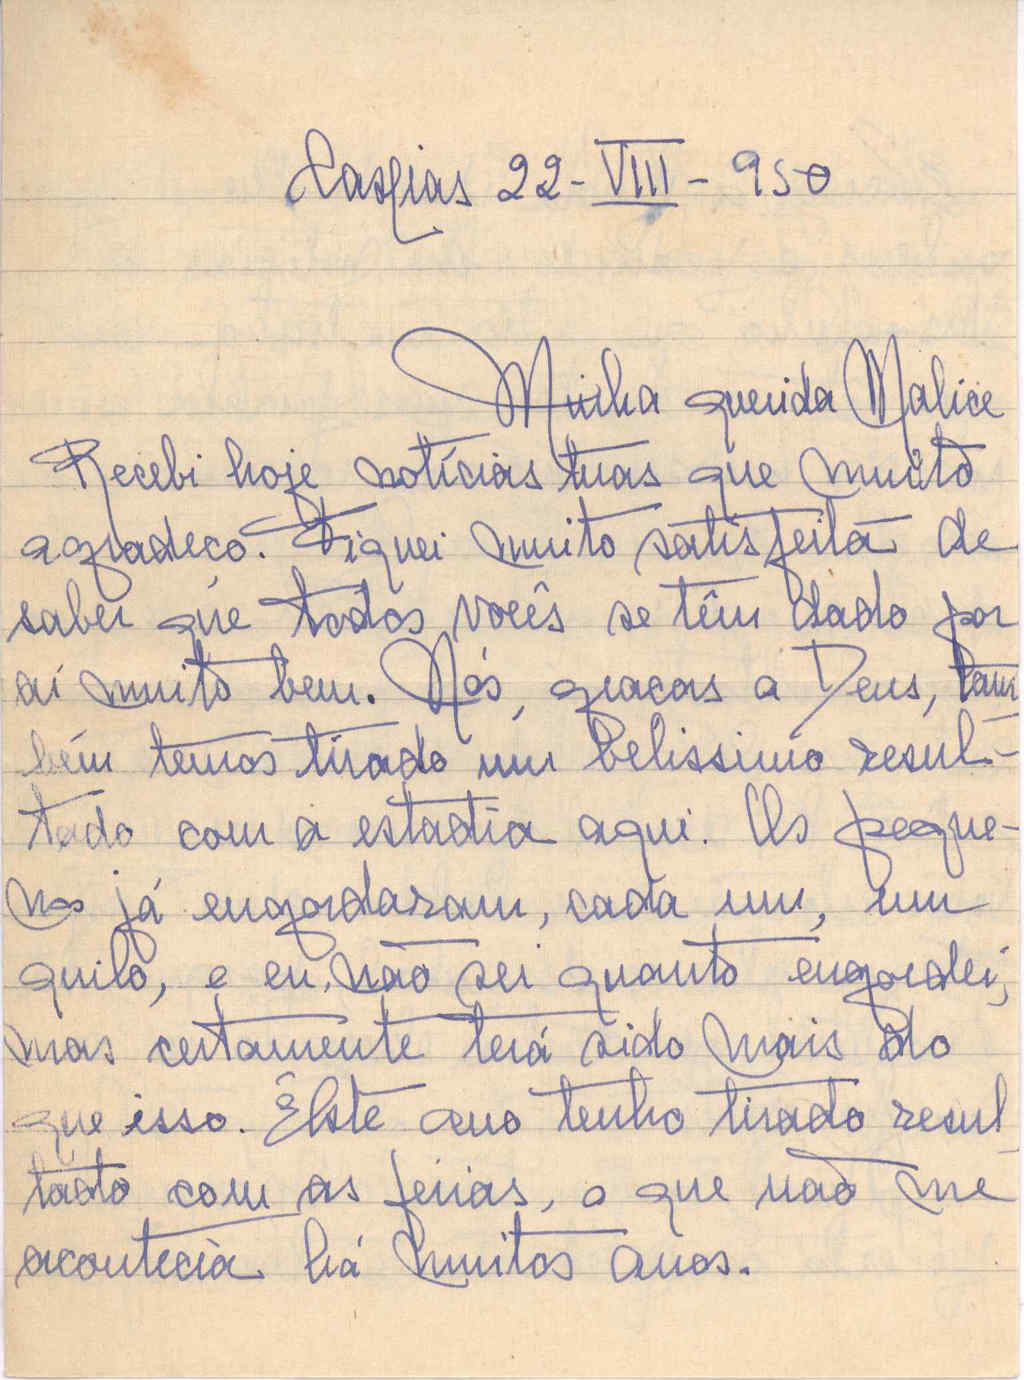 Caxias 22-VIII-950
Minha querida Malice
Recebi hoje notícias tuas que muito
agradeço. Fiquei muito satisfeita de
saber que todos vocês se têm dado por
aí muito bem. Nós, graças a Deus, tam
bém temos tirado um belissimo resul-
tado com a estadia aqui. Os peque-
nos já engordaram, cada um, um
quilo, e eu, não sei quanto engordei,
mas certamente terá sido mais do
que isso. Êste ano tenho tirado resul
tado com as férias, o que não me
acontecia há muitos anos.